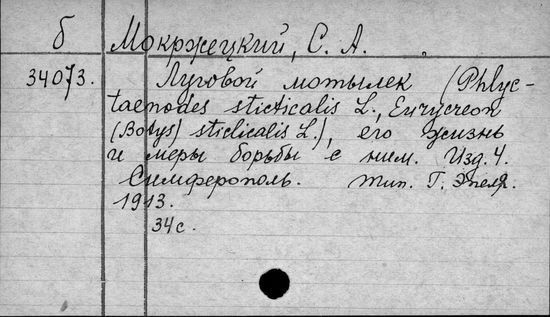 б Мокржецкий, С. А.
34073. Луговой мотылек (Phlyc-
taenodes sticticalis L., Eurycreon
(Botys) sticlicalis L.), его жизнь
и меры борьбы с ним. Изд. 4.
Симферополь. тип. Г. Эпеля.
1913.
34 с.